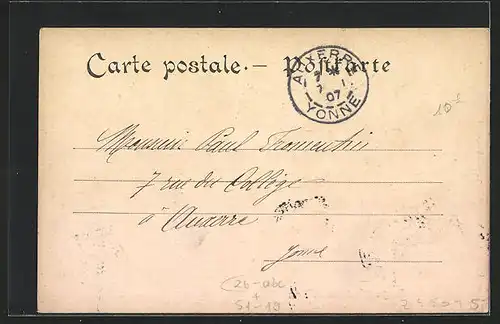 Carte postale. — Postkarte
AUXERRE
7
7 - 1
07
YONNE
10-
Monsieur Paul Fromentin
7 rue du Collège
à Auxerre
Yonne
26-abc
51-19